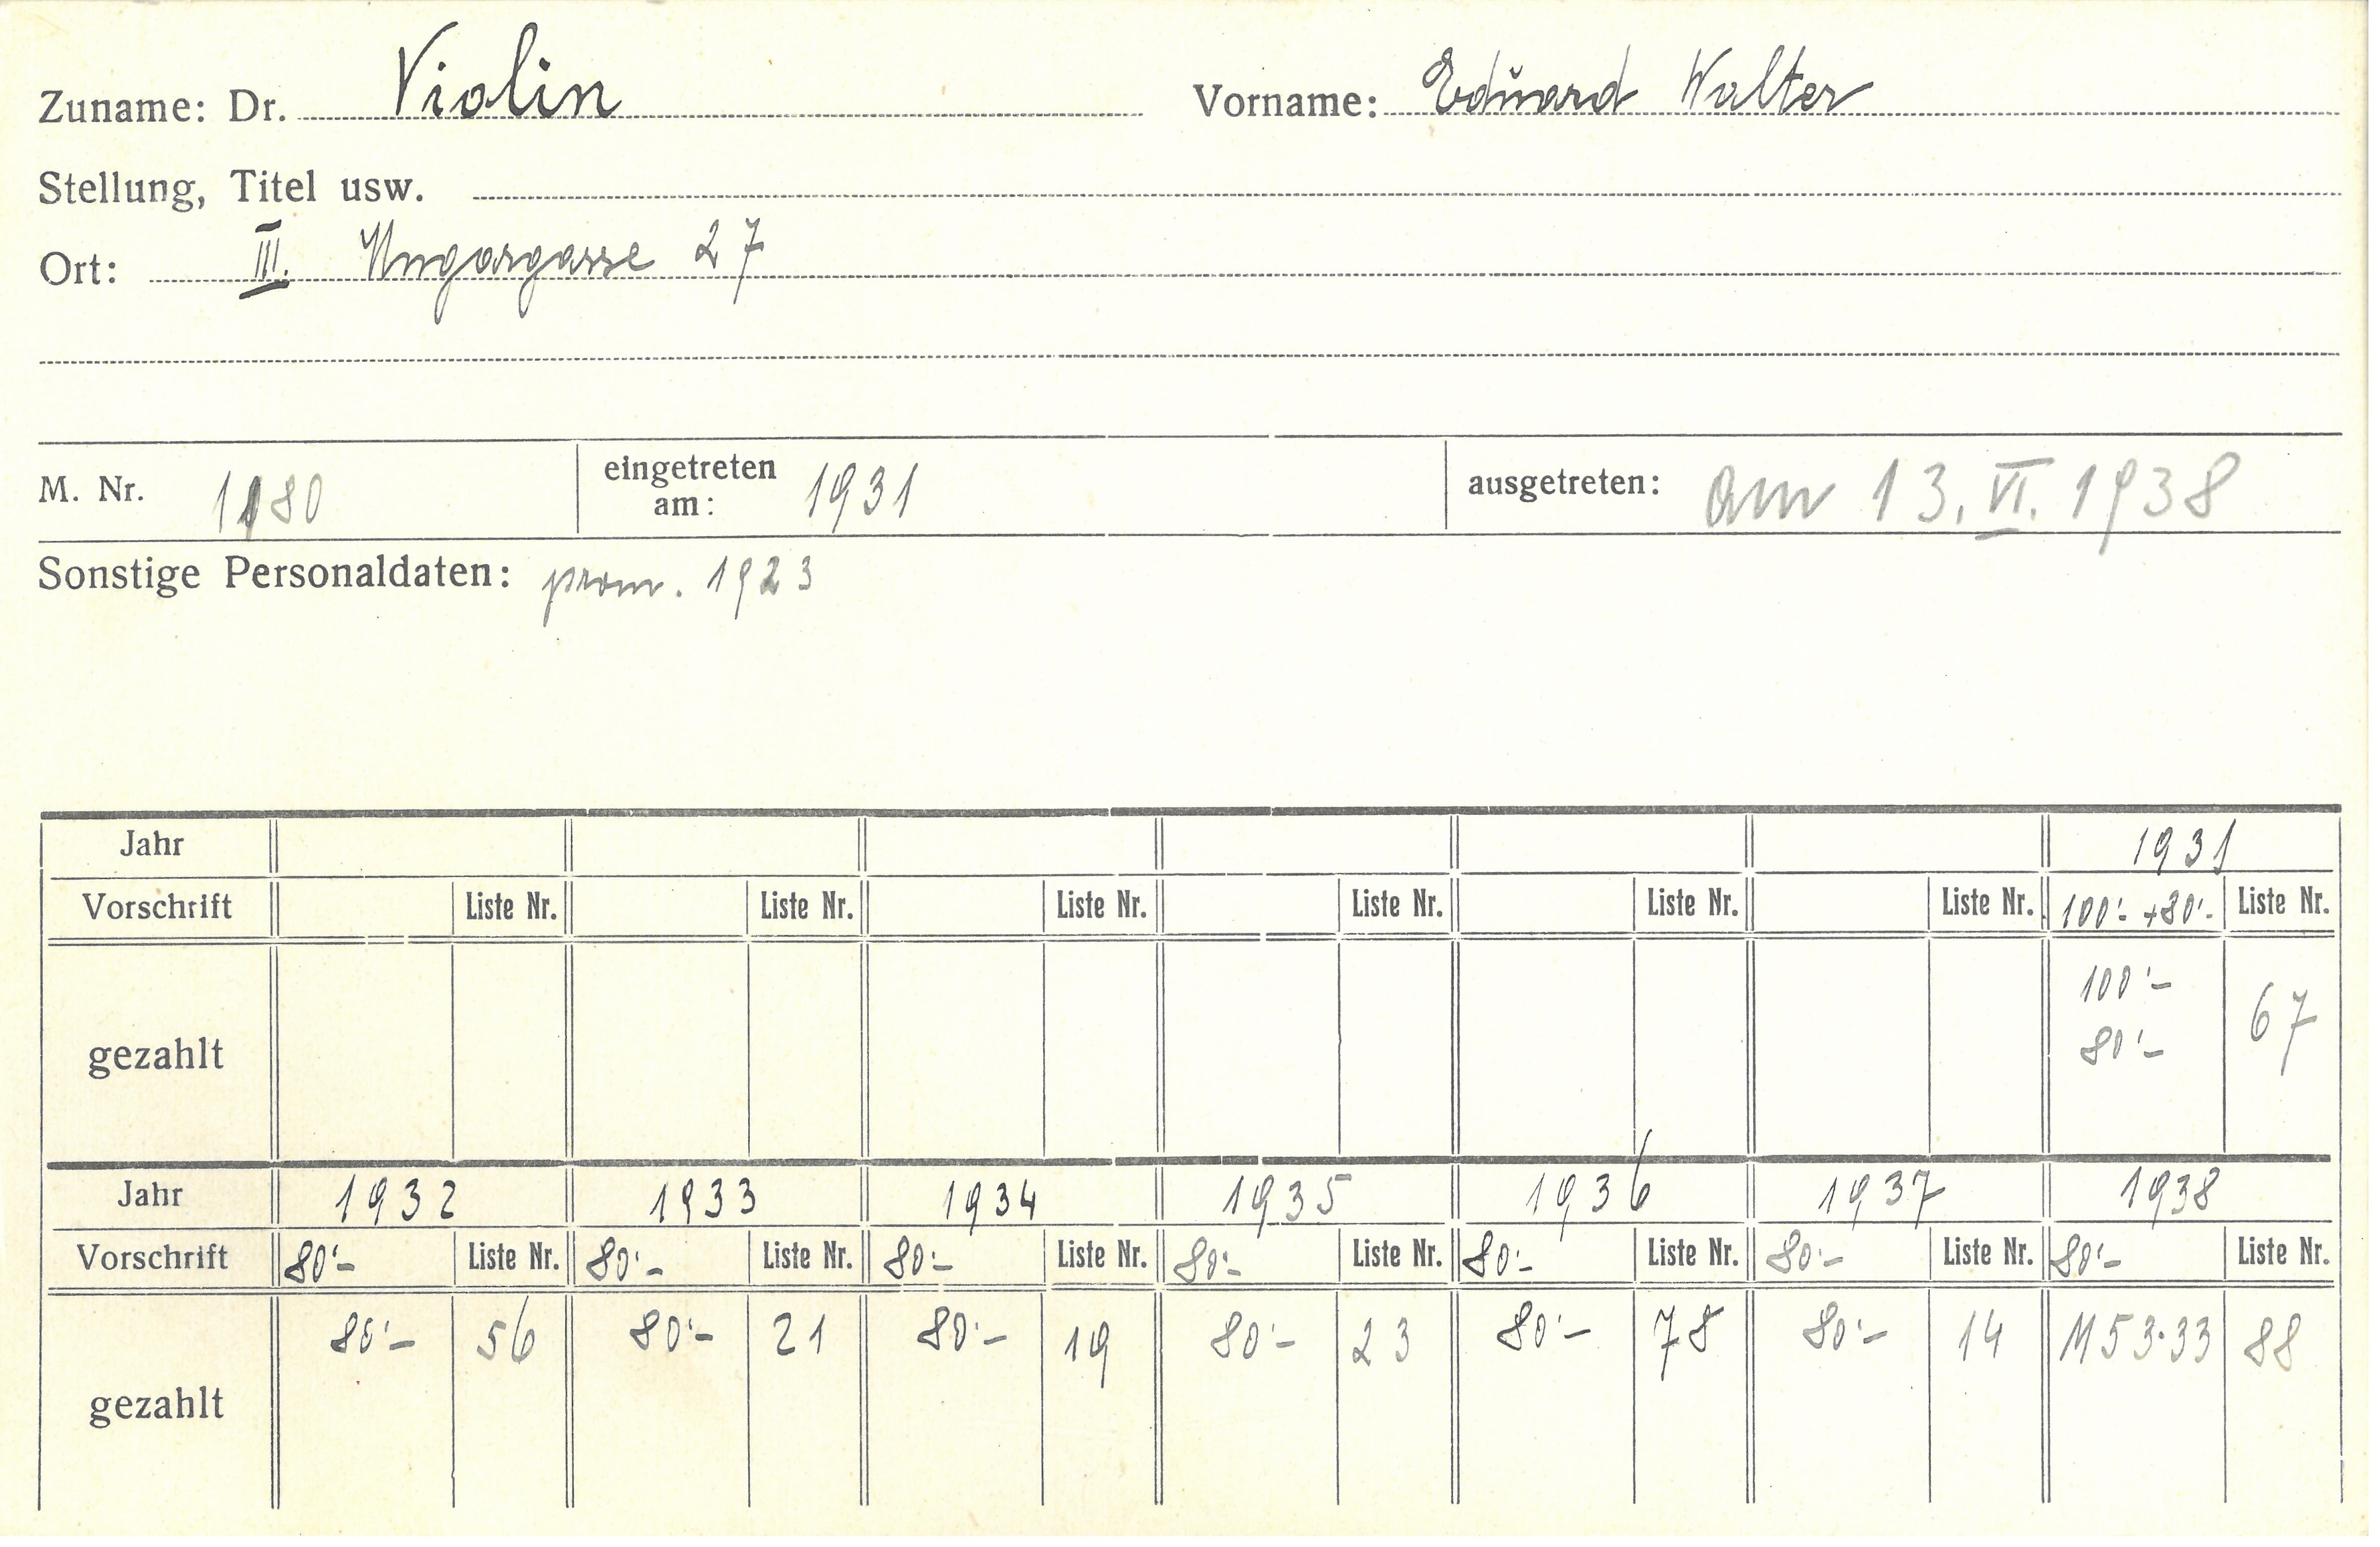 Zuname: Dr. Violin Vorname: Eduard Walter
Stellung, Titel usw.
Ort: III. Ungargasse 27
M. Nr. 1180 eingetreten am: 1931 ausgetreten: am 13. VI. 1938
Sonstige Personaldaten: prom. 1923
Jahr 1931
Vorschrift Liste Nr. Liste Nr. Liste Nr. Liste Nr. Liste Nr. Liste Nr. 100'- +80'- Liste Nr.
gezahlt 100'- 80'- 67
Jahr 1932 1933 1934 1935 1936 1937 1938
Vorschrift 80'- Liste Nr. 80'- Liste Nr. 80'- Liste Nr. 80'- Liste Nr. 80'- Liste Nr. 80'- Liste Nr. 80'- Liste Nr.
gezahlt 80'- 56 80'- 21 80'- 19 80'- 23 80'- 78 80'- 14 M 53·33 88